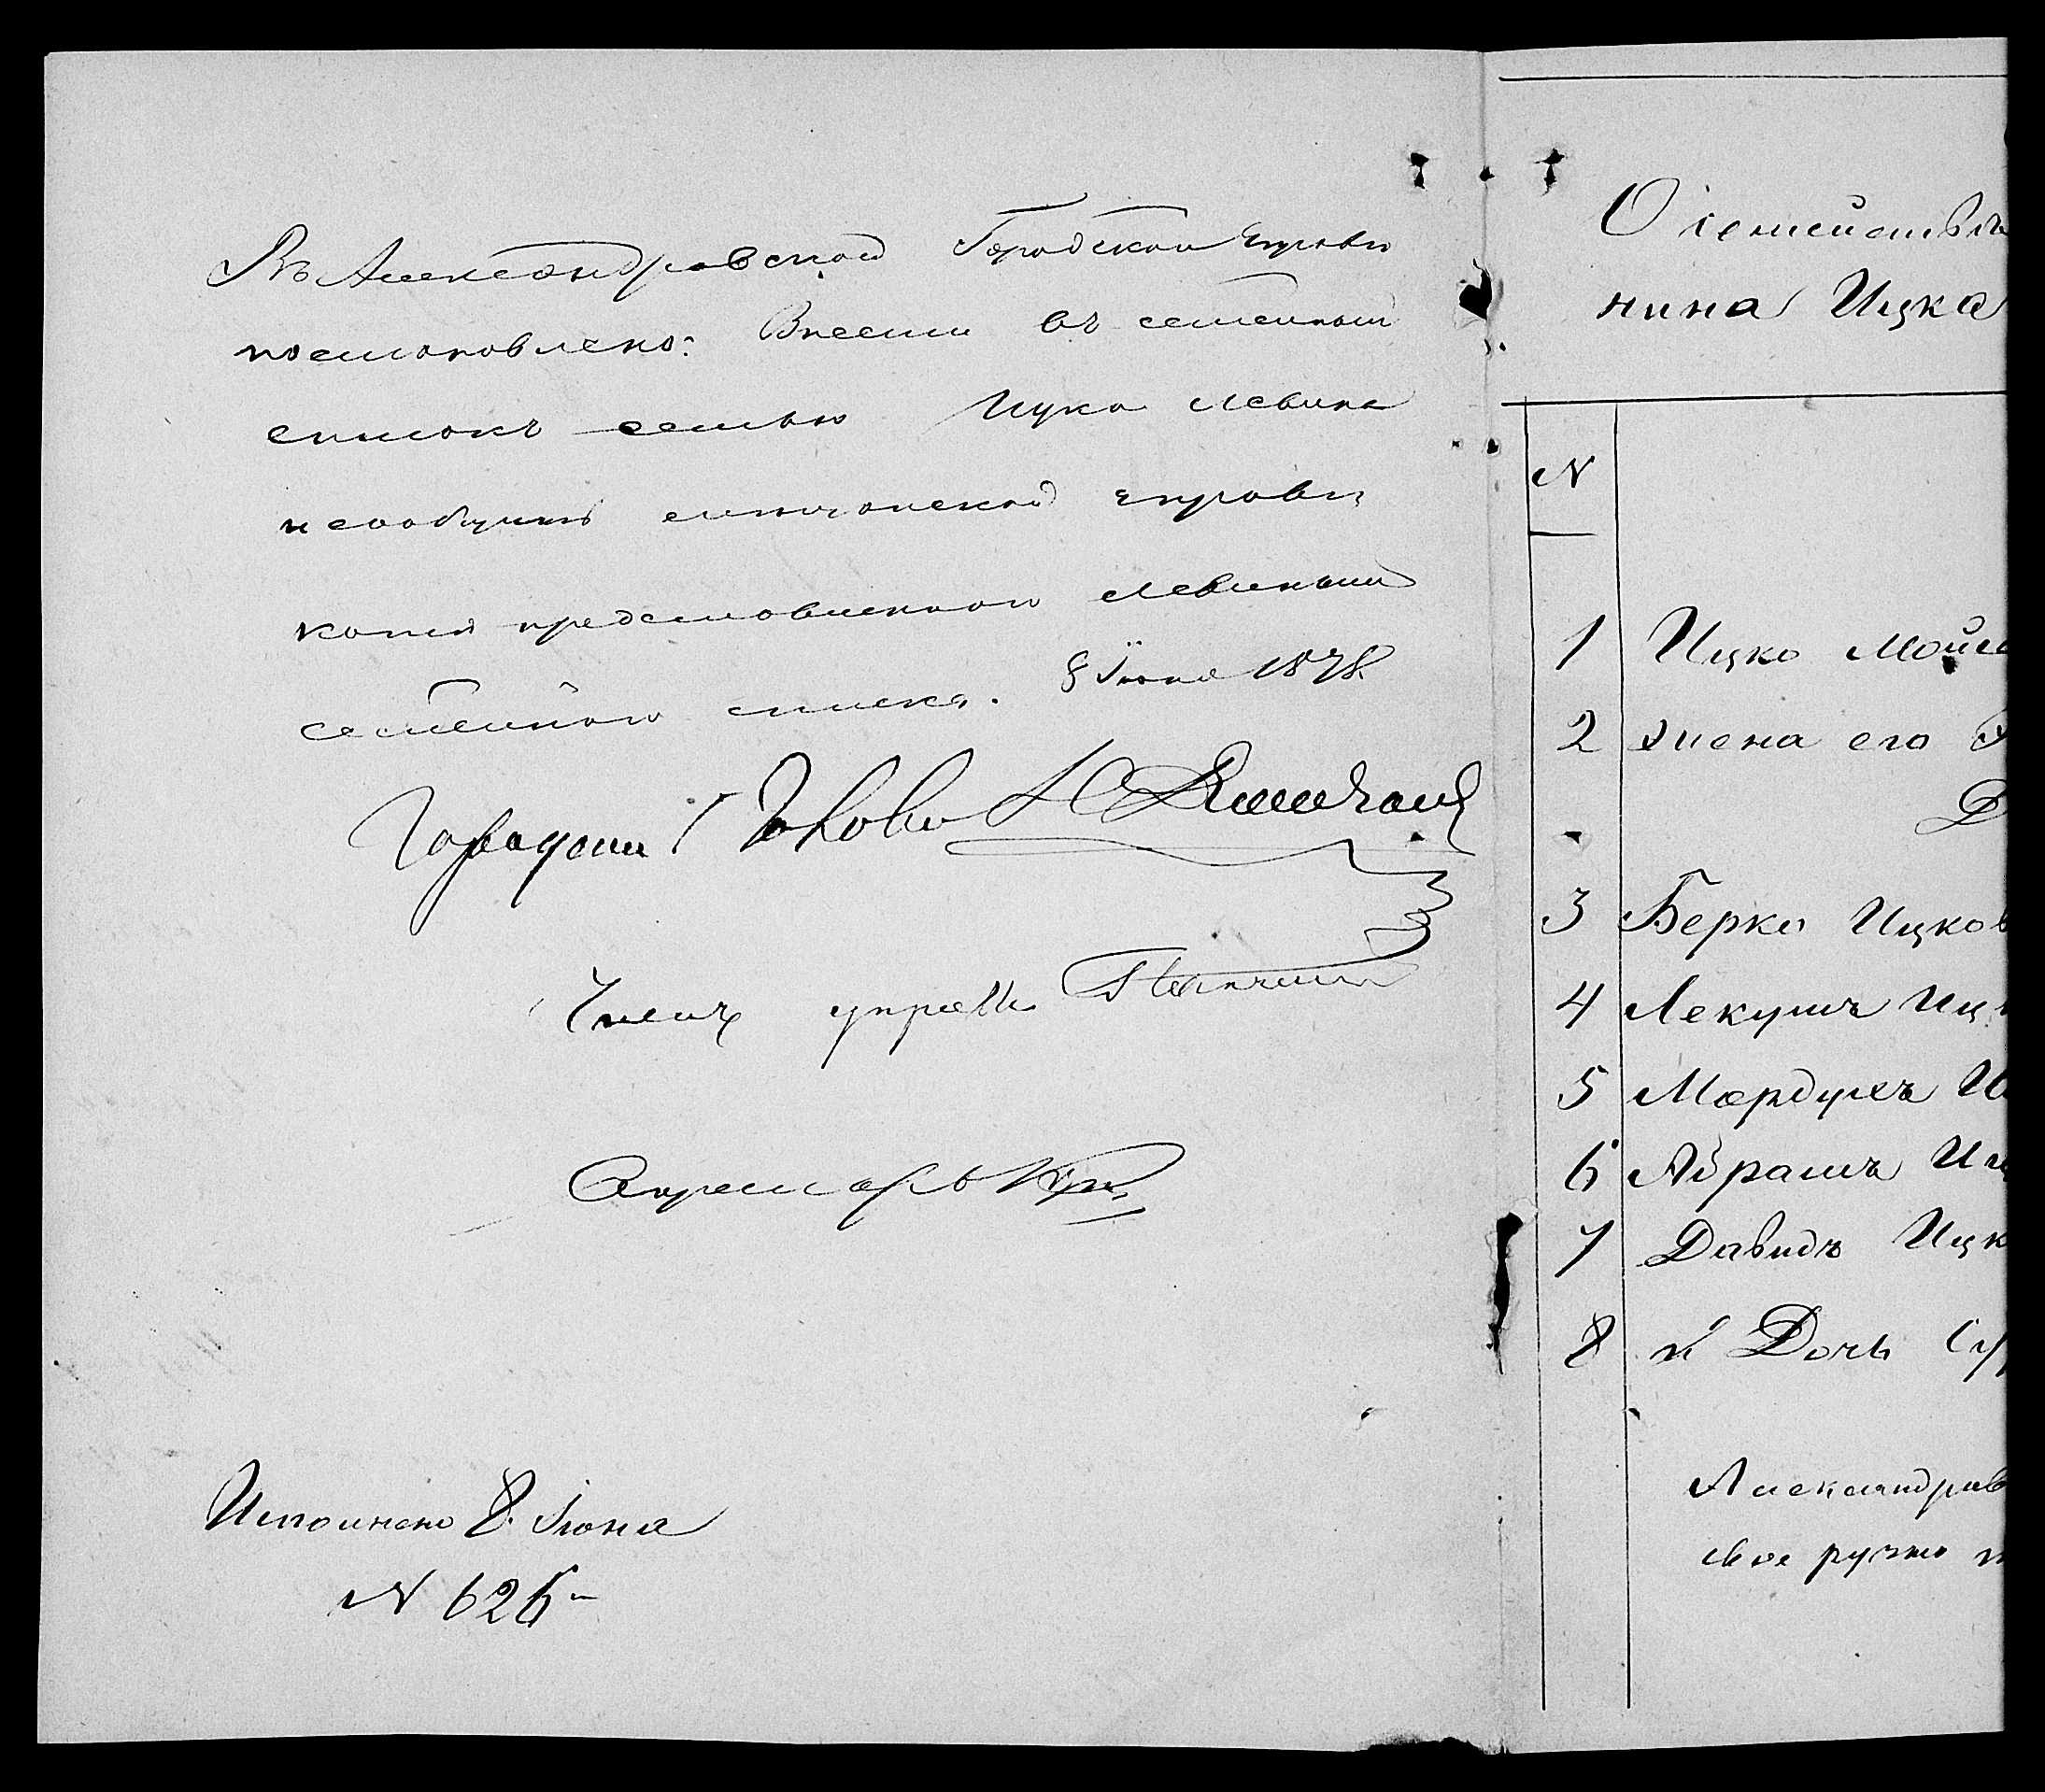 Въ Александровской Городской Управѣ
постановлено: Внести въ семейный
списокъ семью Ицка Левина
и сообщить управѣ
копію представленнаго Левинымъ
семейнаго списка. 8 Іюня 1878.
Городской Голова
Членъ управы
Секретарь
Исполнено 8 Іюня
N 626
О семействѣ
нина Ицка
N
1 Ицко Мойсе
2 жена его
Д
3 Берко Ицков
4 Лекумъ Ицк
5 Мордухъ И
6 Абрамъ Иц
7 Давидъ Ицк
8 и Дочь
Александров
свое ручно